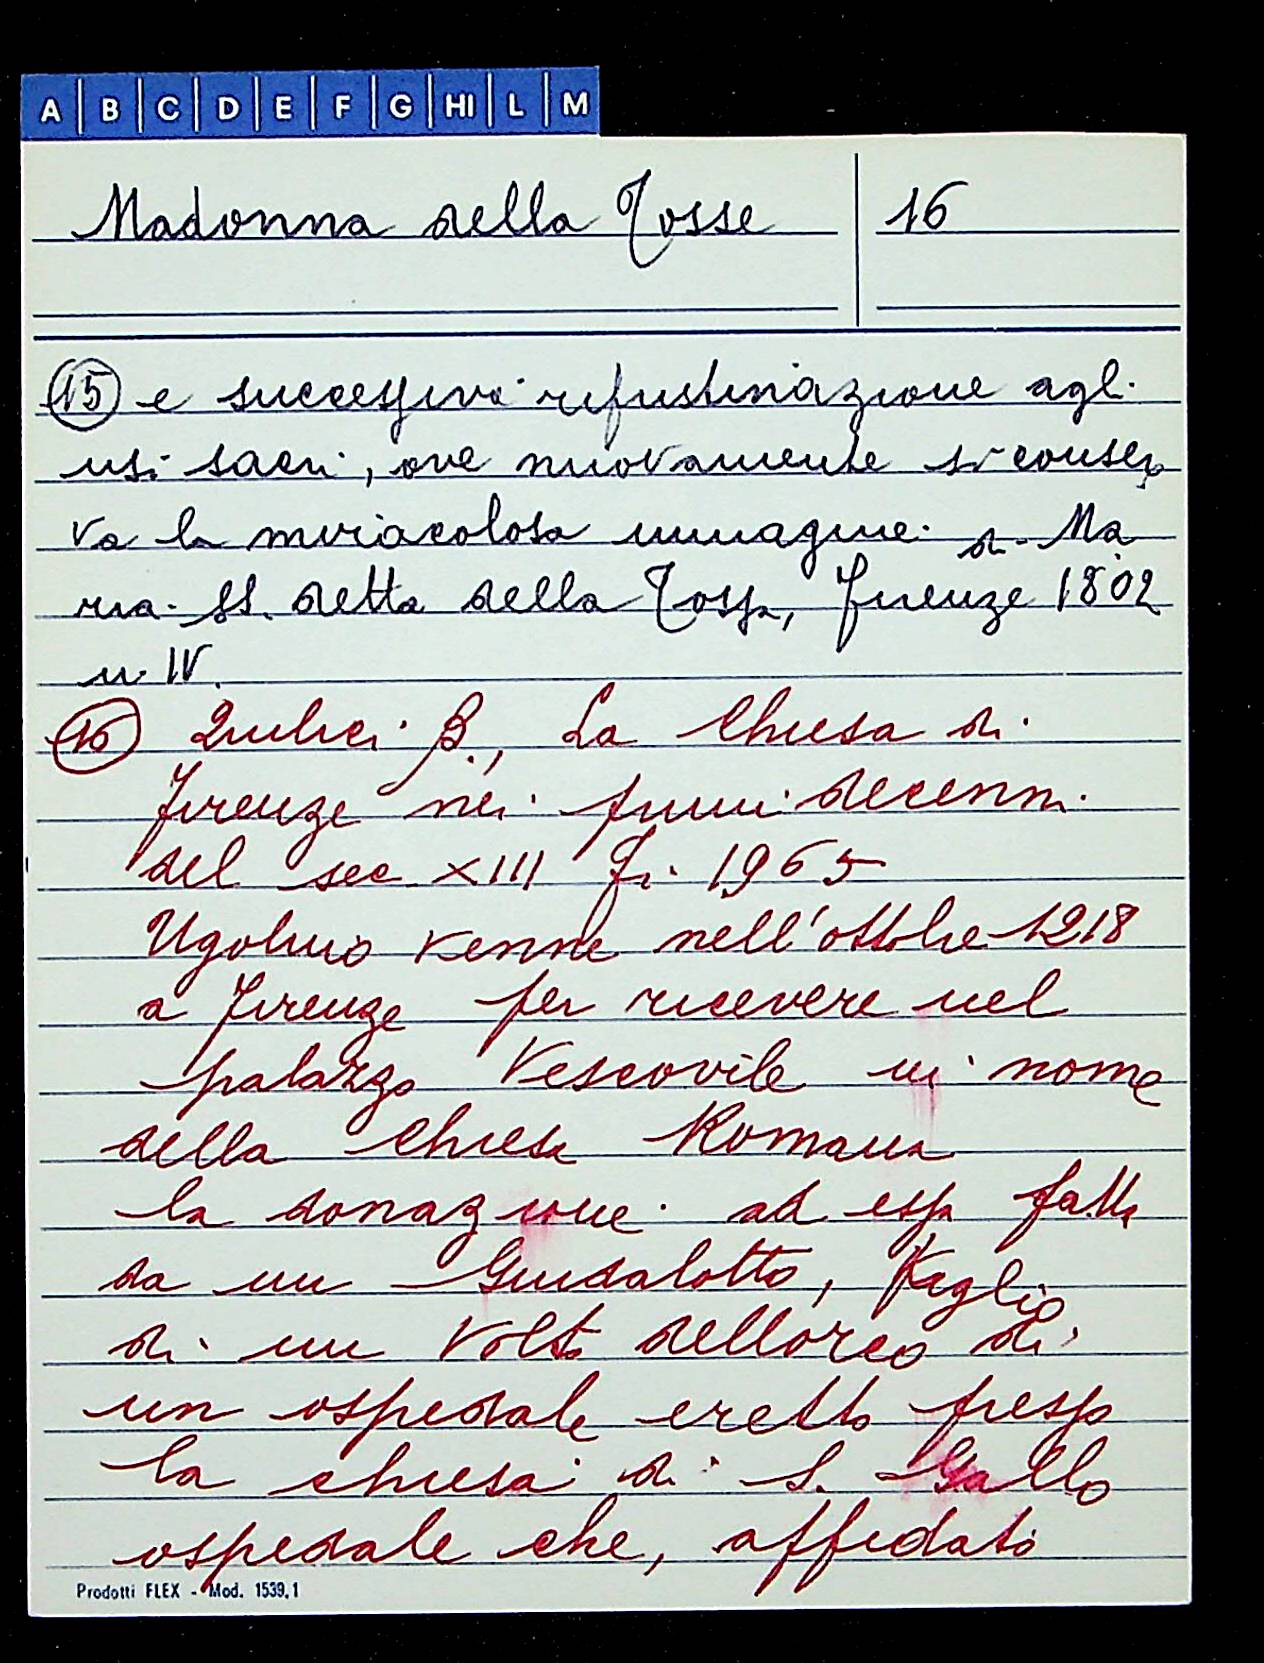 A B C D E F G HI L M
Madonna della Tosse 16
15 e successiva rifustinazione agli
usi sacri, ove nuovamente si conser
va la miracolosa immagine di Ma
ria SS. detta della Tossa, Firenze 1802
n. IV.
16 Quilici B., La Chiesa di
Firenze nei primi decenni
del sec XIII Fi. 1965
Ugolino venne nell'ottobre 1218
a Firenze per ricevere nel
palazzo Vescovile in nome
della Chiesa Romana
la donazione ad essa fatta
da un Guidalotto, figlio
di un Volto dellorco di
un ospedale eretto presso
la chiesa di S. Gallo
ospedale che, affidato
Prodotti FLEX - Mod. 1539.1